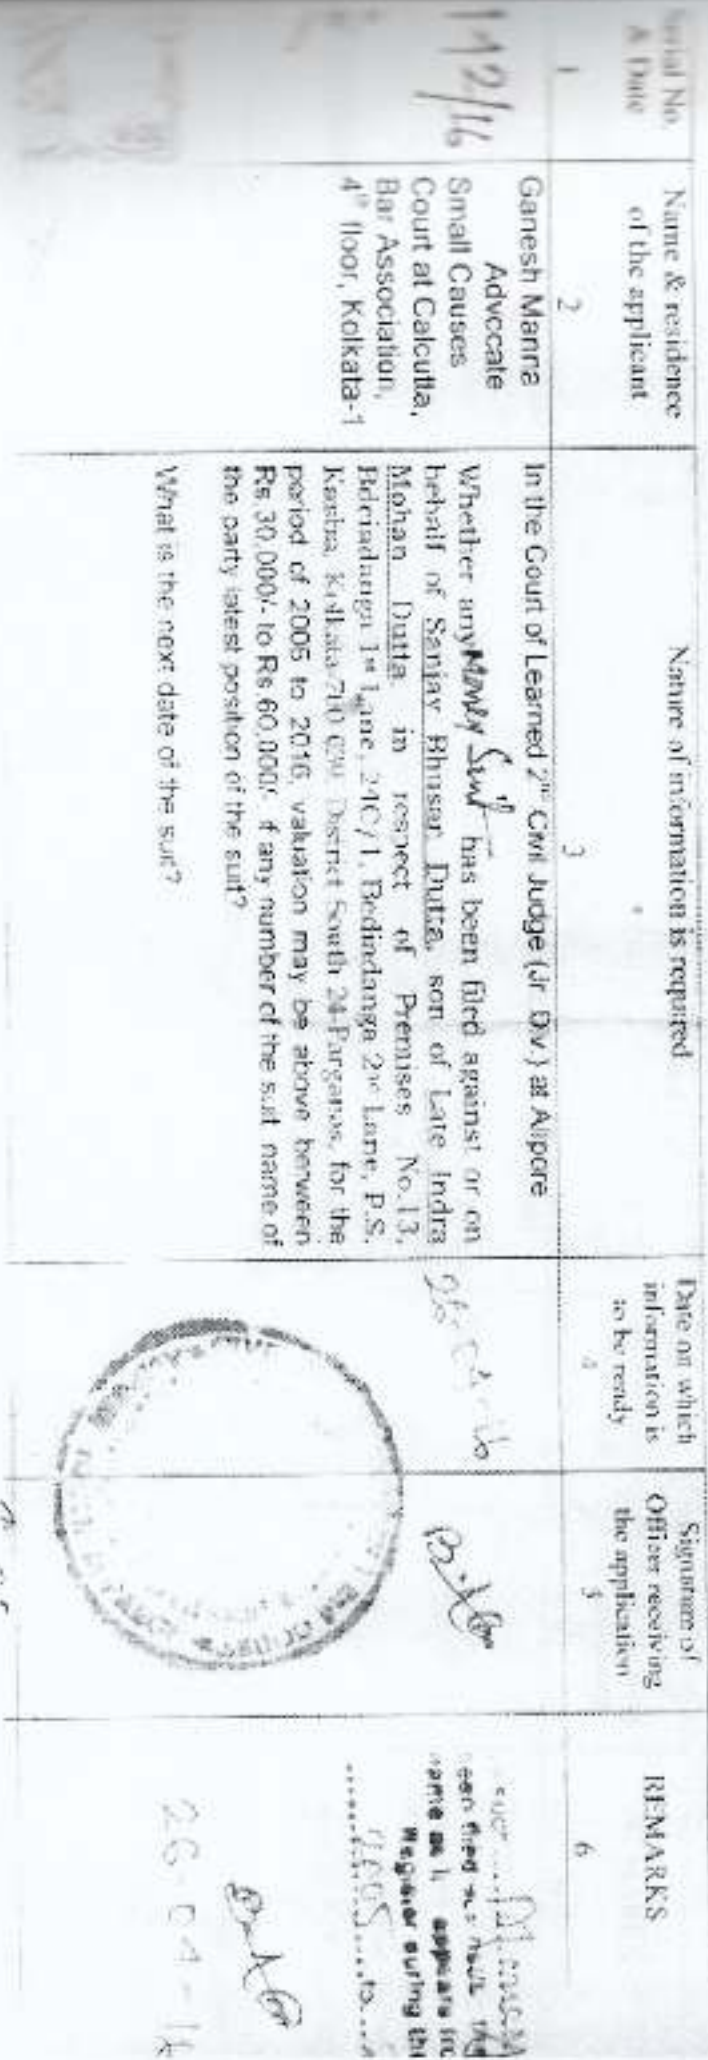 Serial No.
& Date
1
Name & residence
of the applicant
2
Nature of information is required
3
Date on which
information is
to be ready
4
Signature of
Officer receiving
the application
5
REMARKS
6
112/16
Ganesh Manna
Advocate
Small Causes
Court at Calcutta,
Bar Association,
4th floor, Kolkata-1
In the Court of Learned 2nd Civil Judge (Jr. Div.) at Alipore
Whether any Money Suit has been filed against or on
behalf of Sanjay Bhusan Dutta, son of Late Indra
Mohan Dutta in respect of Premises No.13,
1st Lane, 24C/1, Bedindanga 2nd Lane, P.S.
Kasba, Kolkata-700 039, District South 24-Parganas, for the
period of 2005 to 2016, valuation may be above between
Rs 30,000/- to Rs 60,000/- if any number of the suit name of
the party latest position of the suit?
What is the next date of the suit?
26-04-16
been filed
name as it appears
Register during the
2005 to
26-04-16